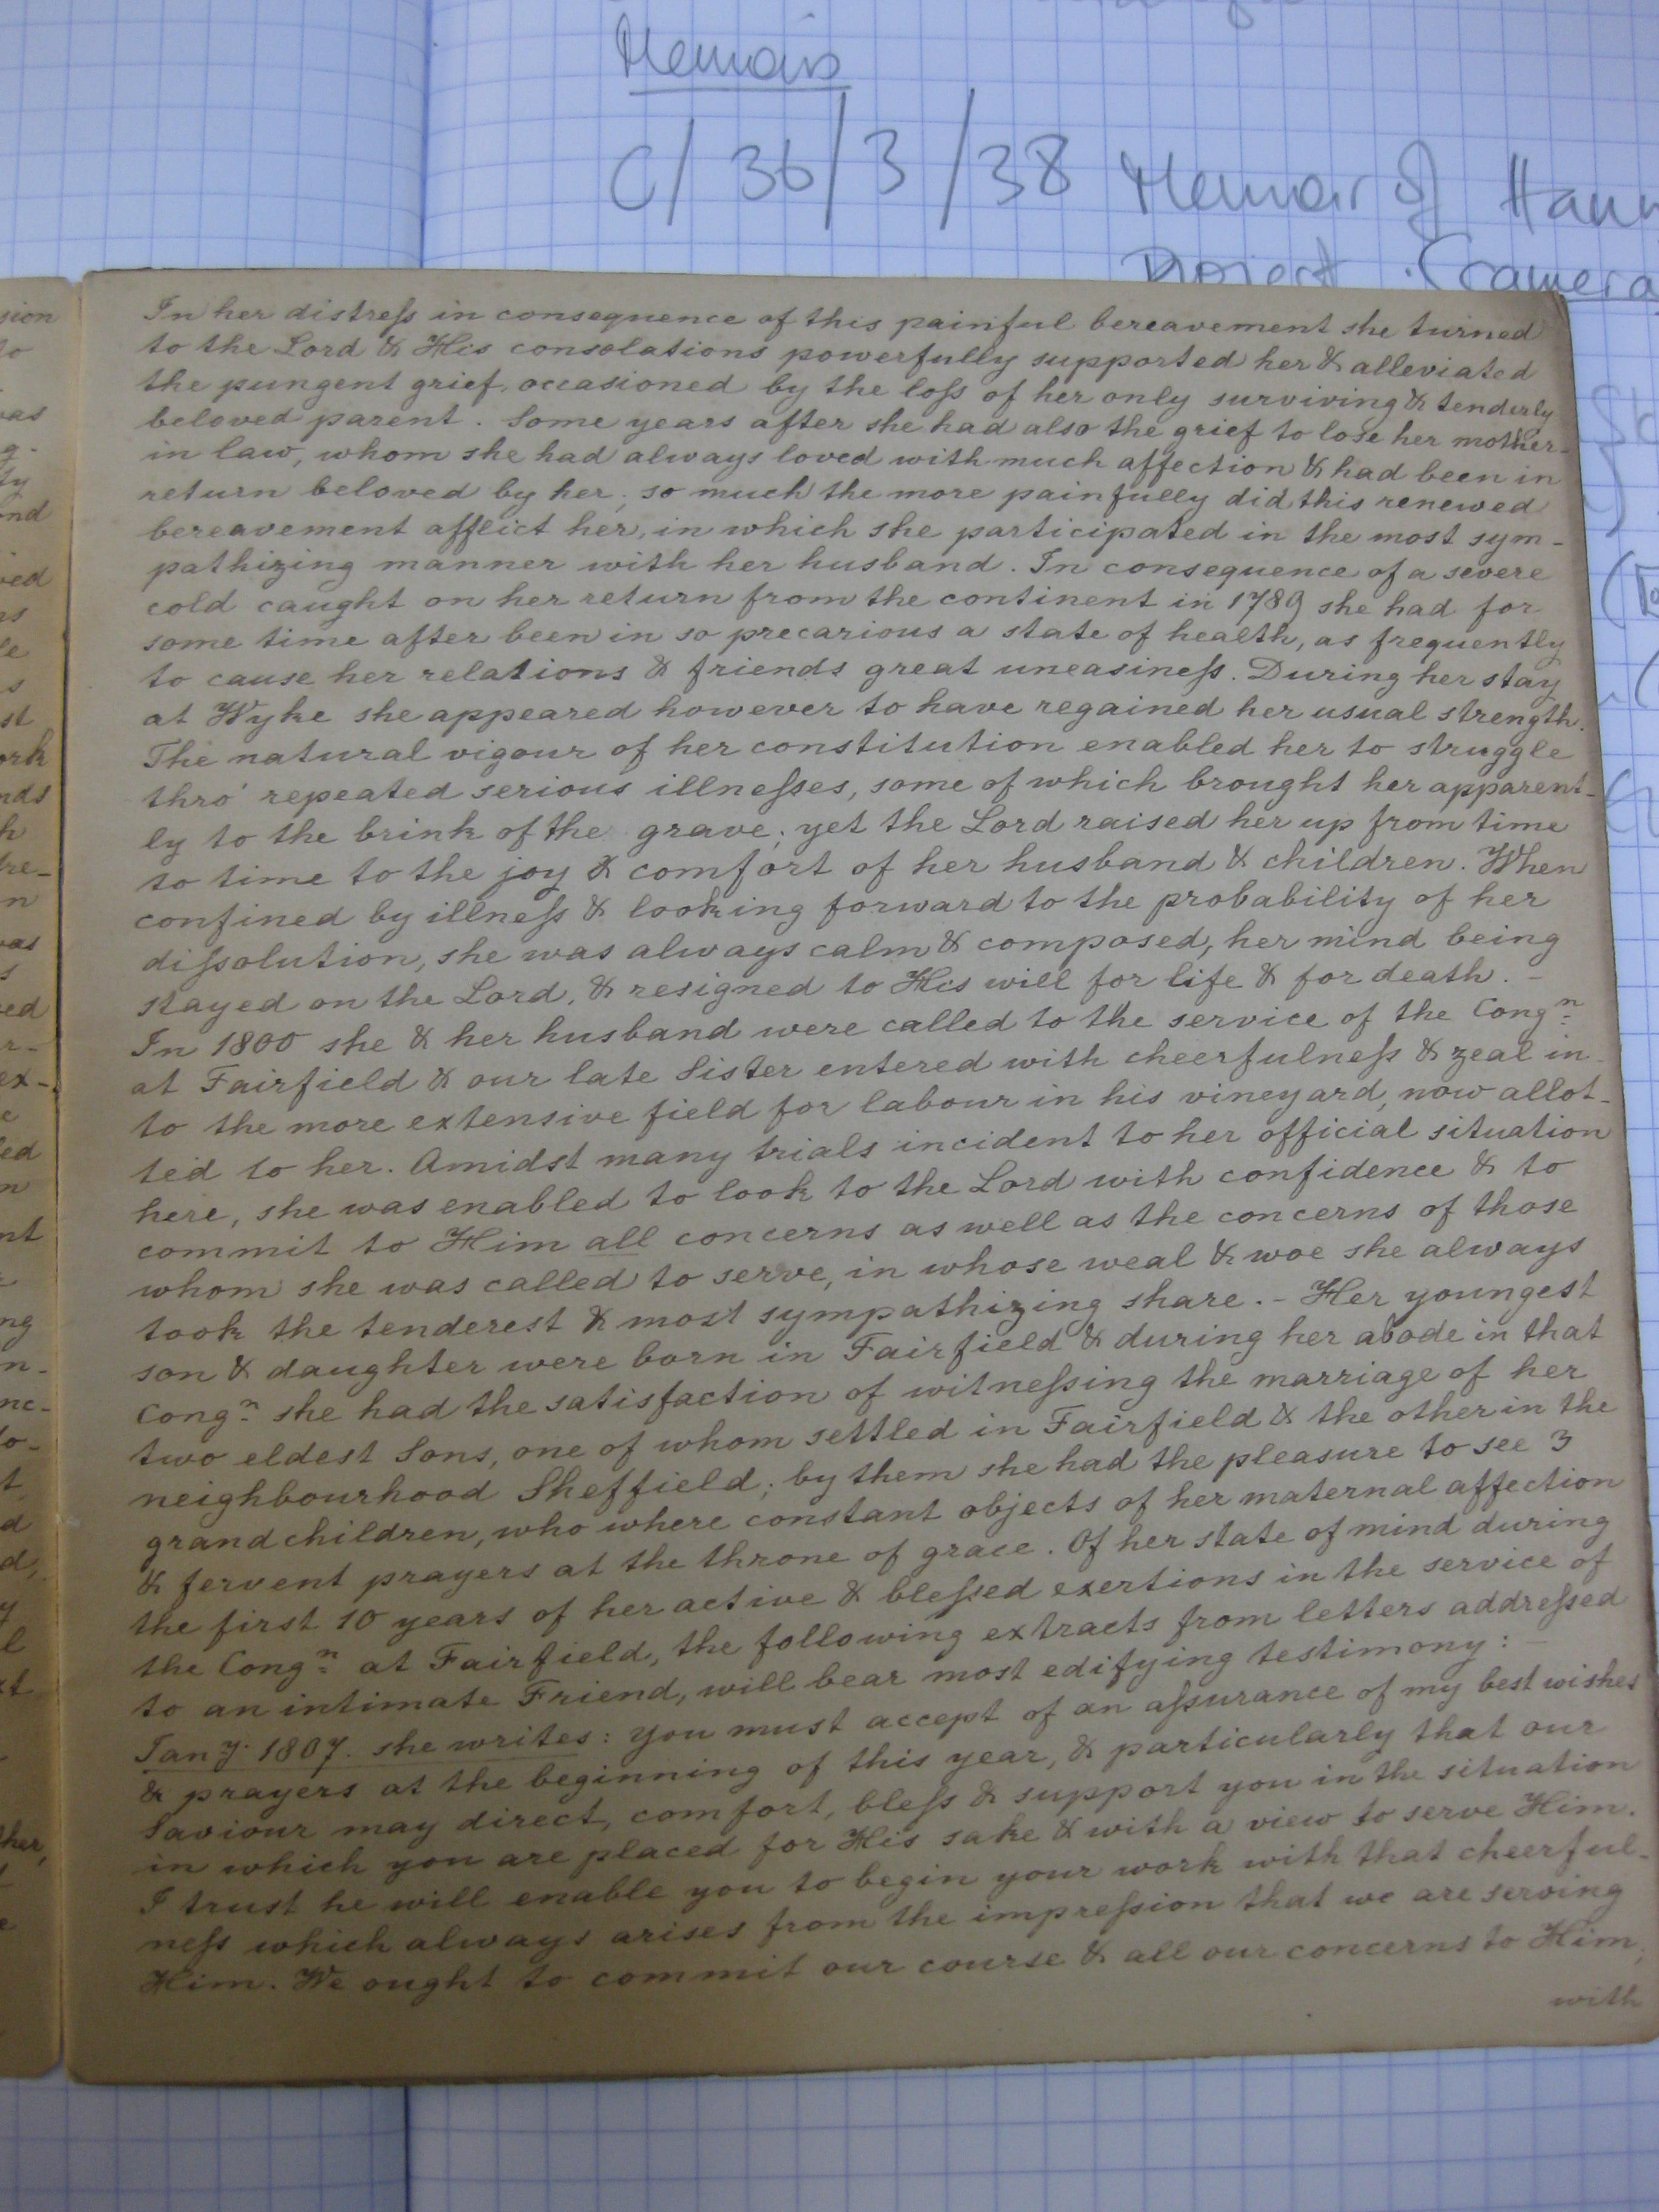 Memoirs
C/36/3/38 Memoir of Hann
Project (camera
In her distreſs in consequence of this painful bereavement she turned
to the Lord & His consolations powerfully supported her & alleviated
the pungent grief, occasioned by the loſs of her only surviving & tenderly
beloved parent. Some years after she had also the grief to lose her mother-
in law, whom she had always loved with much affection & had been in
return beloved by her; so much the more painfully did this renewed
bereavement afflict her, in which she participated in the most sym-
pathizing manner with her husband. In consequence of a severe
cold caught on her return from the continent in 1789 she had for
some time after been in so precarious a state of health, as frequently
to cause her relations & friends great uneasineſs. During her stay
at Wyke she appeared however to have regained her usual strength.
The natural vigour of her constitution enabled her to struggle
thro' repeated serious illneſses, some of which brought her apparent-
ly to the brink of the grave; yet the Lord raised her up from time
to time to the joy & comfort of her husband & children. When
confined by illneſs & looking forward to the probability of her
diſsolution, she was always calm & composed, her mind being
stayed on the Lord, & resigned to His will for life & for death. –
In 1800 she & her husband were called to the service of the Congn
at Fairfield & our late Sister entered with cheerfulneſs & zeal in-
to the more extensive field for labour in his vineyard, now allot-
ted to her. Amidst many trials incident to her official situation
here, she was enabled to look to the Lord with confidence & to
commit to Him all concerns as well as the concerns of those
whom she was called to serve, in whose weal & woe she always
took the tenderest & most sympathizing share. – Her youngest
son & daughter were born in Fairfield & during her abode in that
Congn she had the satisfaction of witneſsing the marriage of her
two eldest Sons, one of whom settled in Fairfield & the other in the
neighbourhood Sheffield; by them she had the pleasure to see 3
grandchildren, who where constant objects of her maternal affection
& fervent prayers at the throne of grace. Of her state of mind during
the first 10 years of her active & bleſsed exertions in the service of
the Congn at Fairfield, the following extracts from letters addreſsed
to an intimate Friend, will bear most edifying testimony: –
Jany. 1807. she writes: you must accept of an aſsurance of my best wishes
& prayers at the beginning of this year, & particularly that our
Saviour may direct, comfort, bleſs & support you in the situation
in which you are placed for His sake & with a view to serve Him.
I trust he will enable you to begin your work with that cheerful-
neſs which always arises from the impreſsion that we are serving
Him. We ought to commit our course & all our concerns to Him,
with